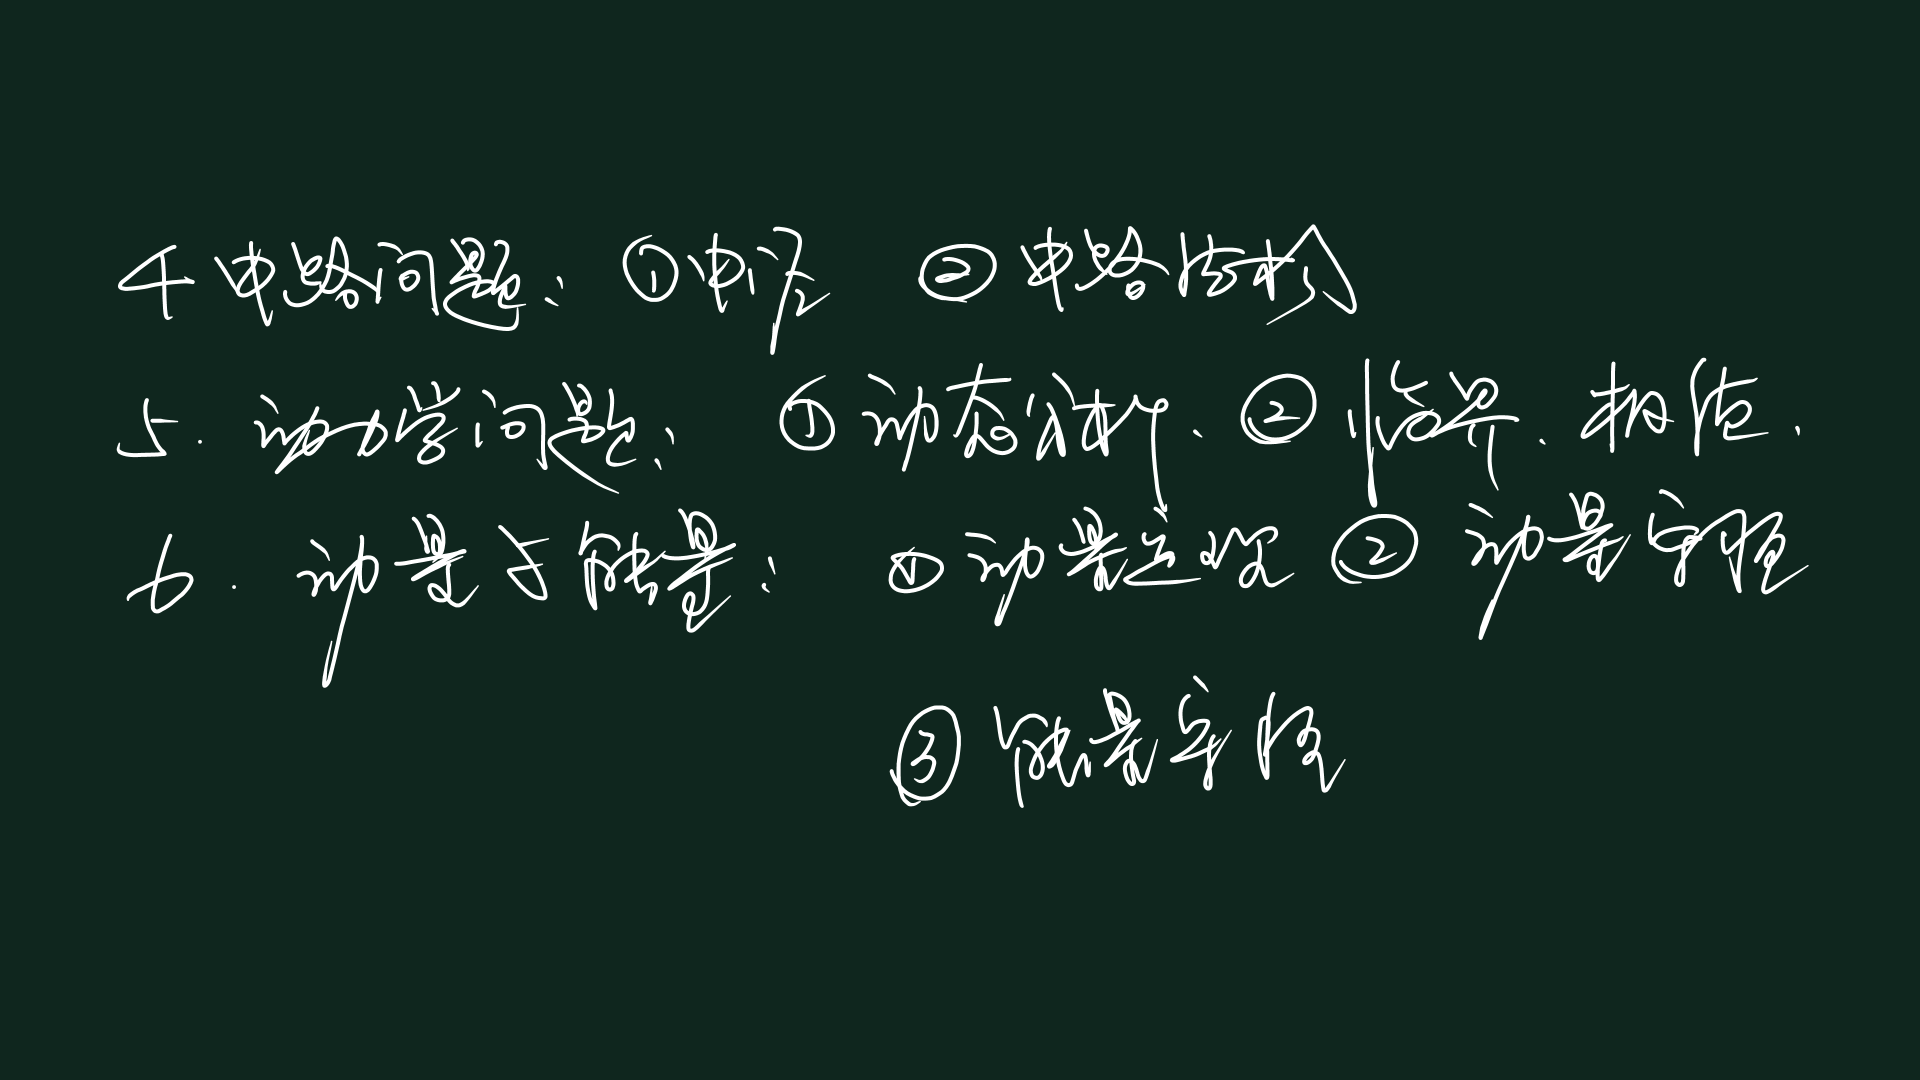 4 电路问题: ①电源 ②电路结构
5. 动力学问题: ①动态分析. ②临界. 极值.
6. 动量与能量: ①动量定理 ②动量守恒
③能量守恒